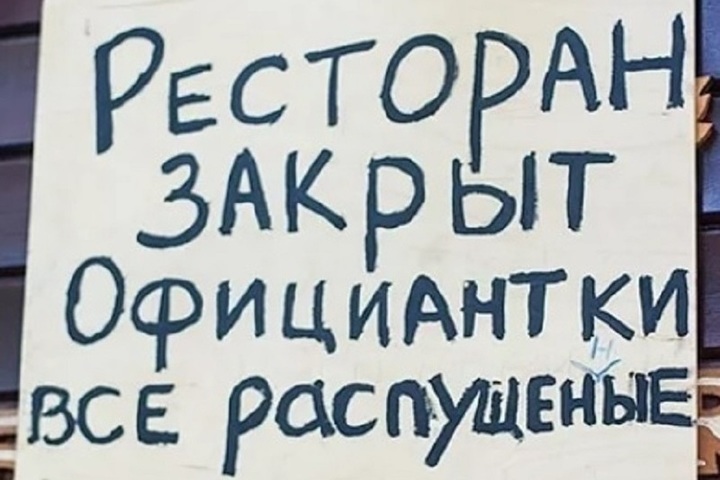 Ресторан
закрыт
Официантки
н
все распущеные